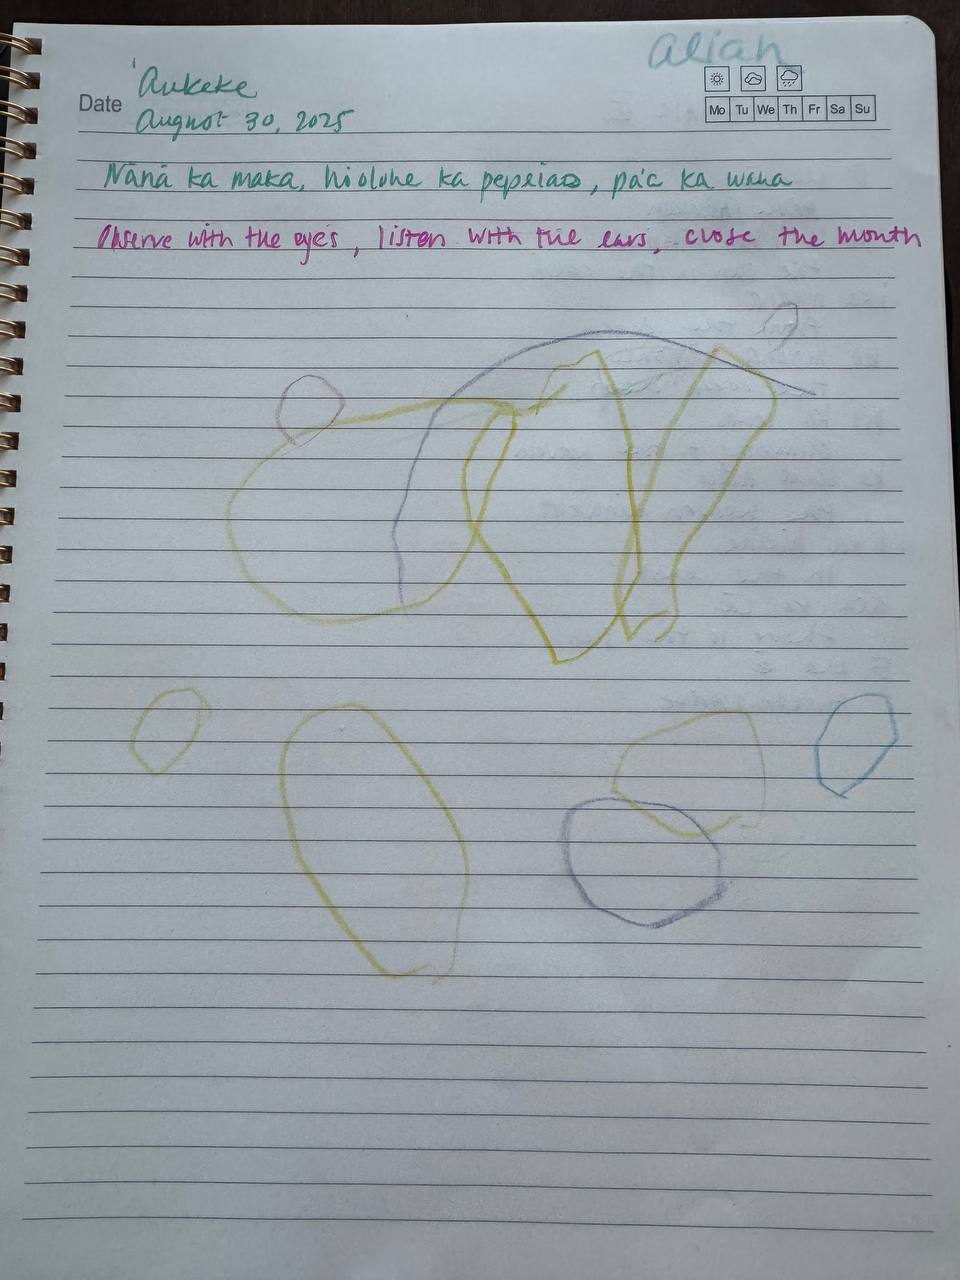 aliah
'Aukeke
Date
August 30, 2025
Mo Tu We Th Fr Sa Su
Nānā ka maka, hoolohe ka pepeiao, pa'a ka waha
Observe with the eyes, listen with the ears, close the mouth